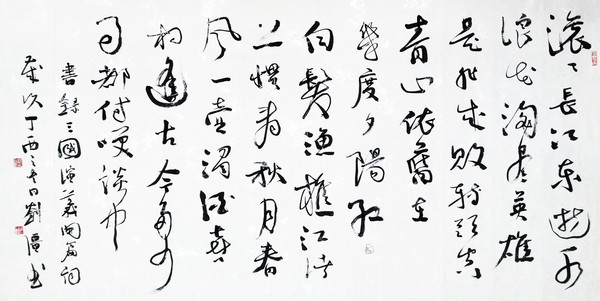 滚々長江東逝水
浪花淘尽英雄
是非成敗轉頭空
青山依舊在
幾度夕陽紅
白髮漁樵江渚
上慣看秋月春
風一壺濁酒喜
相逢古今多少
事都付笑談中
書錄三國演義開篇詞
歲次丁酉之冬日劉書